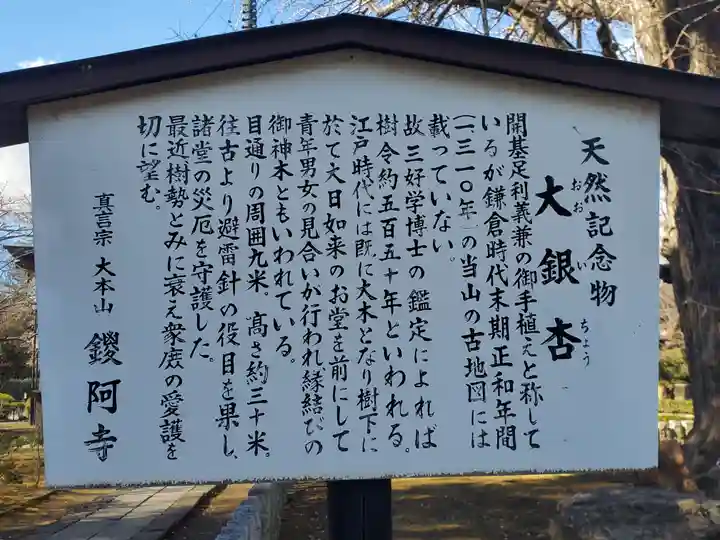 天然記念物
大銀杏
おおいちょう
開基足利義兼の御手植えと称して
いるが鎌倉時代末期正和年間
(一、三一〇年)の当山の古地図には
載っていない。
故三好学博士の鑑定によれば
樹令約五百五十年といわれる。
江戸時代には既に大木となり樹下に
於て大日如来のお堂を前にして
青年男女の見合いが行われ縁結びの
御神木ともいわれている。
目通りの周囲九米。高さ約三十米。
往古より避雷針の役目を果し、
諸堂の災厄を守護した。
最近樹勢とみに衰え衆庻の愛護を
切に望む。
真言宗 大本山 鑁阿寺